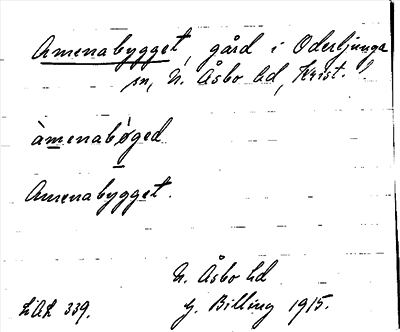 Amenabygget, gård i Oderljunga
sn, N. Åsbo hd, Krist. l
àmenabøged
Amenabygget.
N. Åsbo hd
LAL 339. G. Billing 1915.